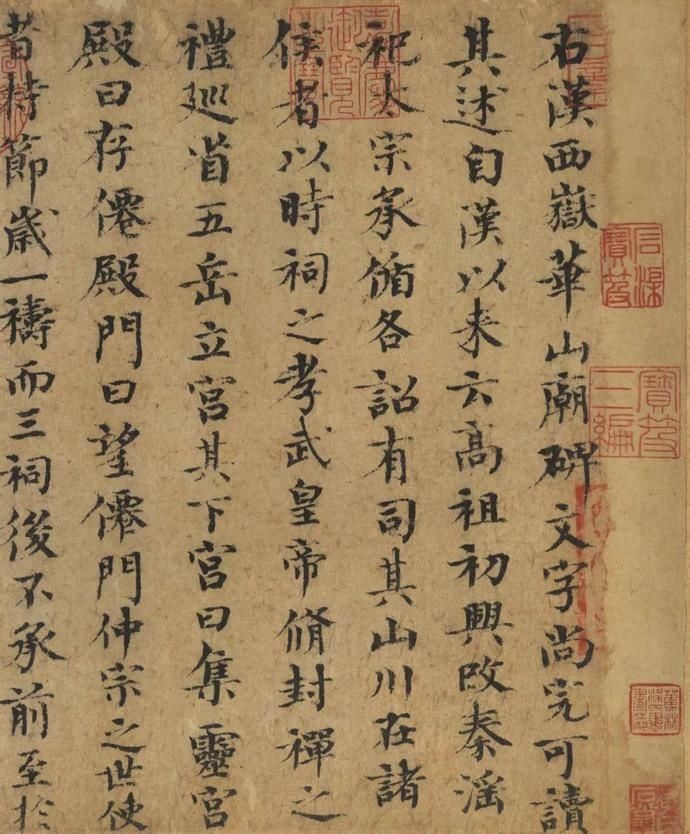 右漢西嶽華山廟碑文字尚完可讀
其述自漢以来云高祖初興改秦淫
祀太宗承循各詔有司其山川在諸
侯者以時祠之孝武皇帝脩封禪之
禮巡省五岳立宫其下宫曰集靈宫
殿曰存僊殿門曰望僊門仲宗之世使
者持節歳一禱而三祠後不承前至於
石渠寶笈
寶笈三編